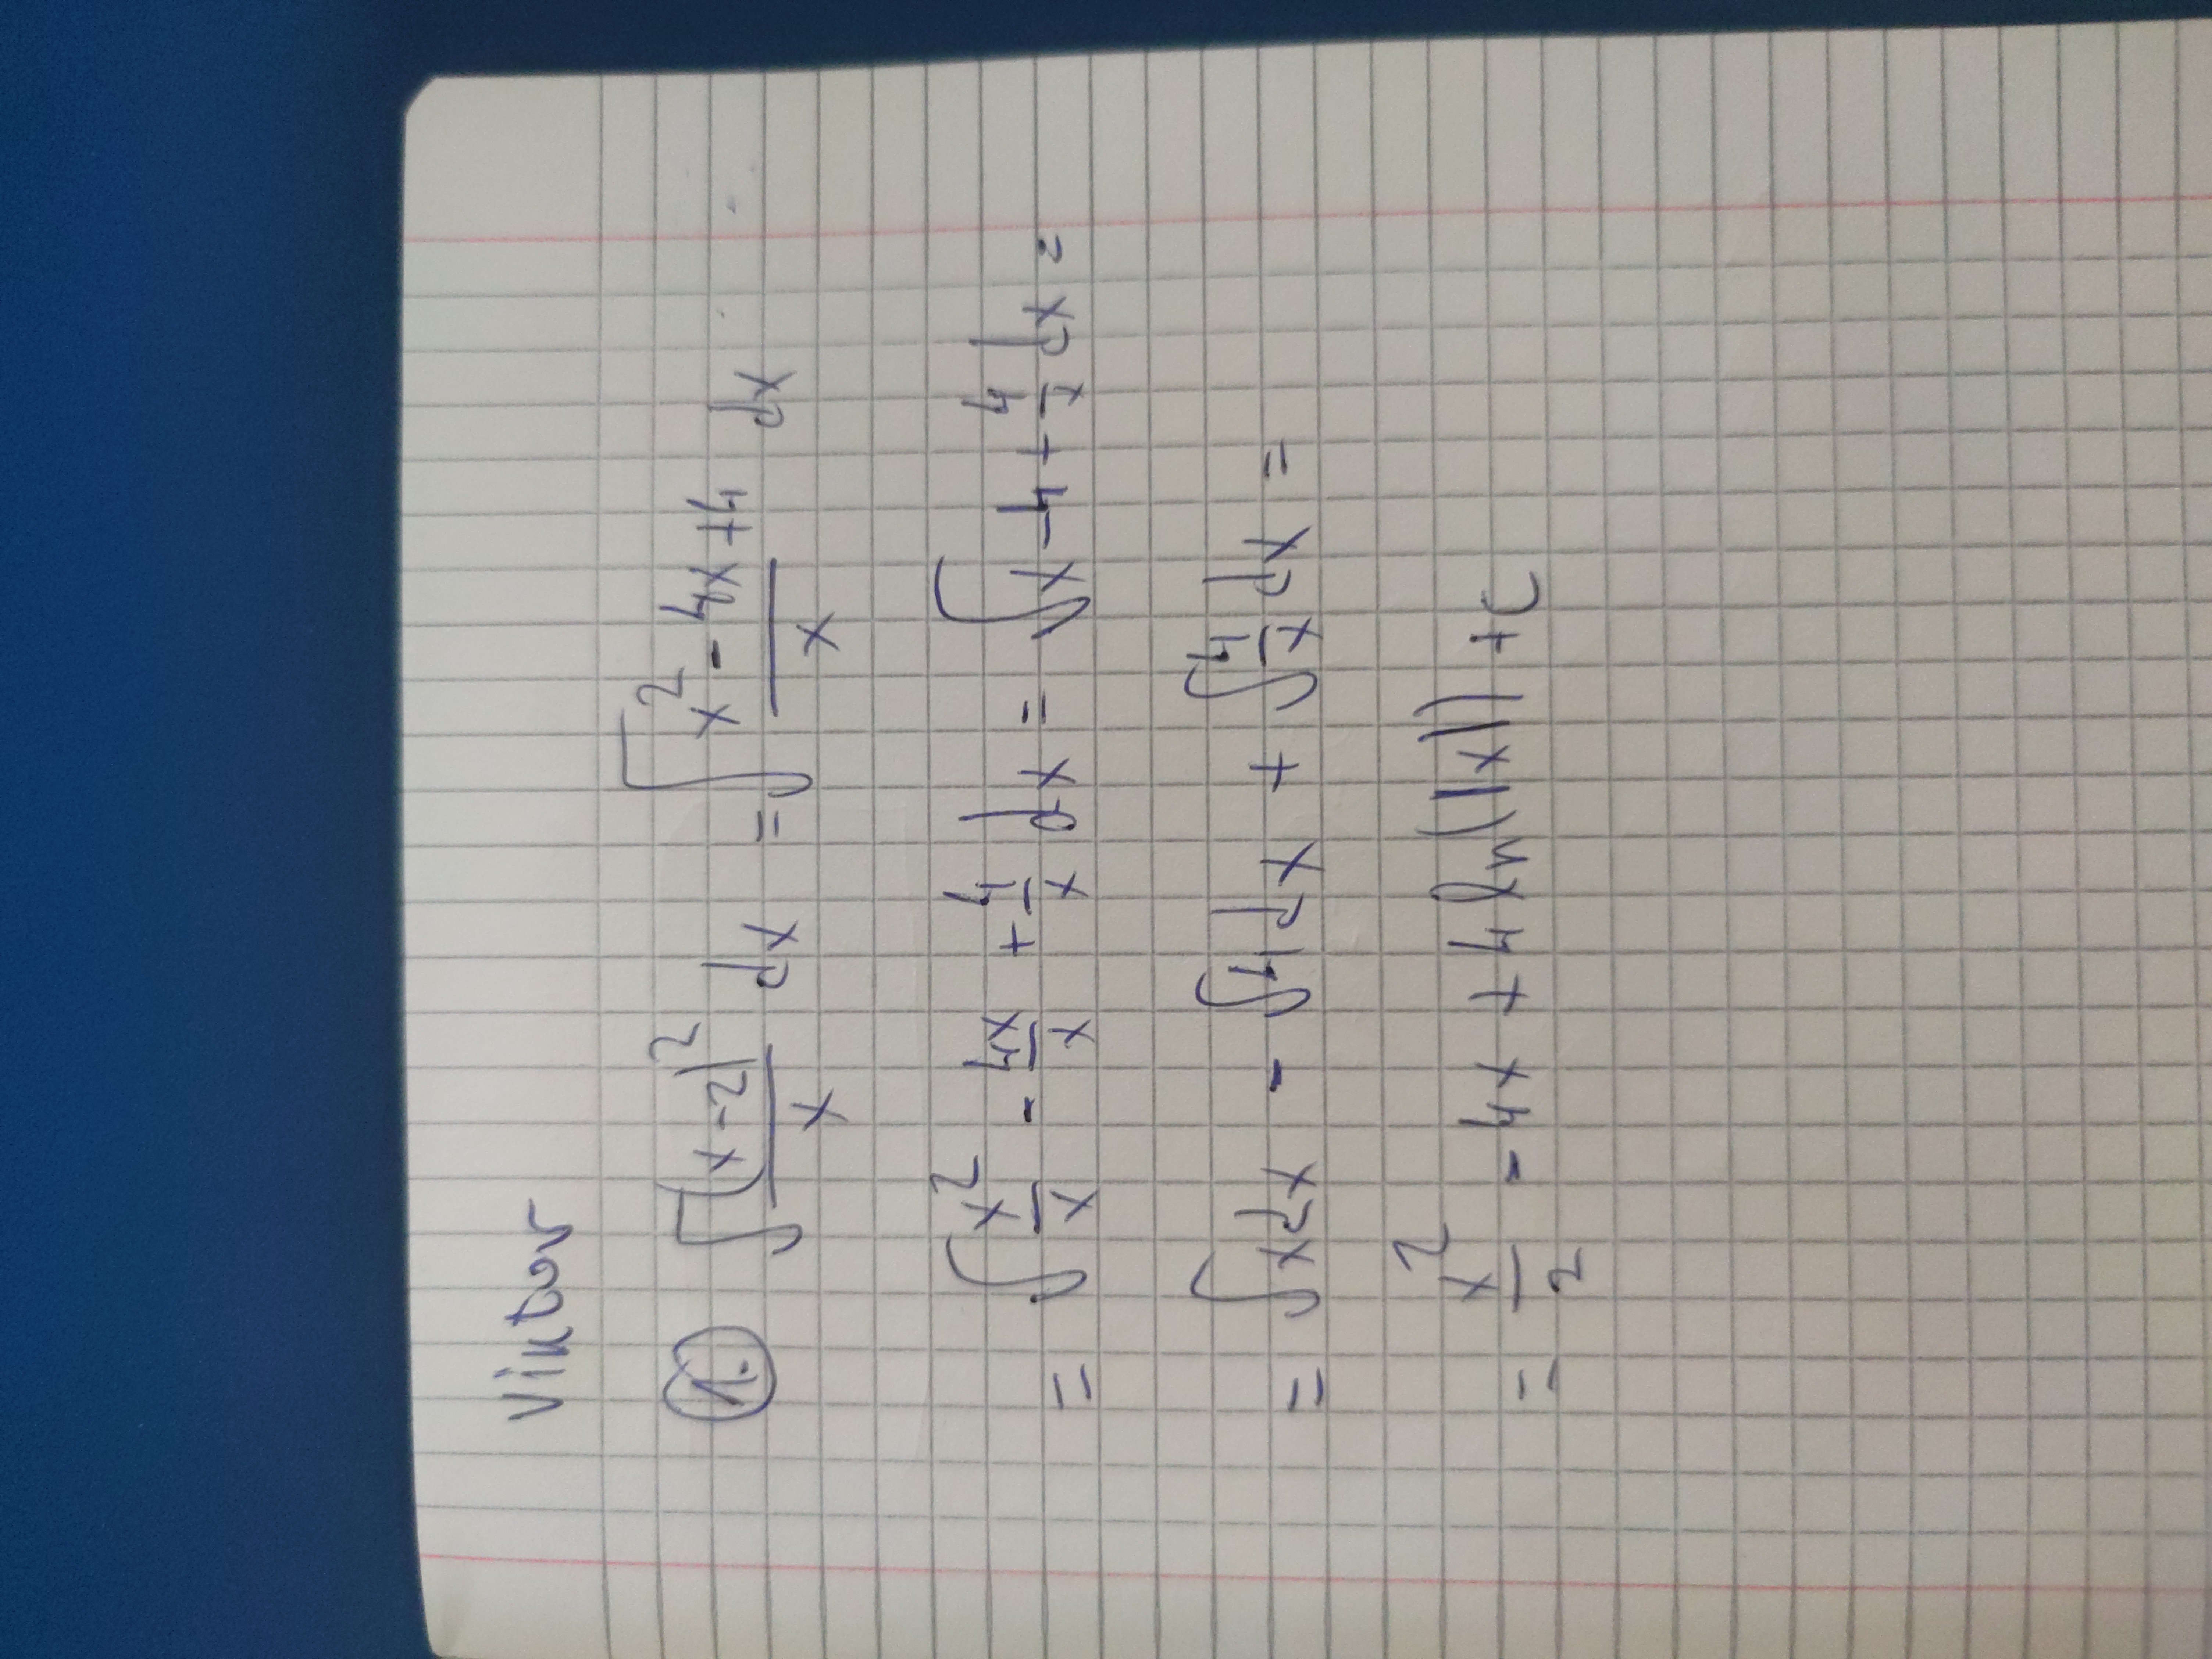 Viktor
1. ∫ (x-2)²/x dx = ∫ x² - 4x + 4/x dx
= ∫ x²/x - 4x/x + 4/x dx = ∫ x - 4 + 4/x dx =
= ∫ x dx - ∫ 4 dx + ∫ 4/x dx =
= x²/2 - 4x + 4 ln(|x|) + c